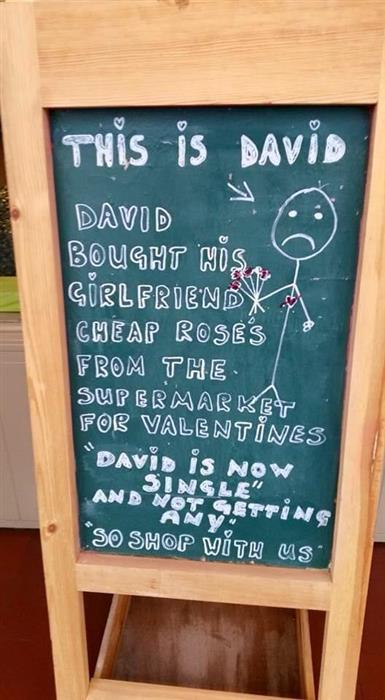 THIS IS DAVID
DAVID
BOUGHT HIS
GIRLFRIEND
CHEAP ROSES
FROM THE
SUPERMARKET
FOR VALENTINES
"DAVID IS NOW
SINGLE"
AND NOT GETTING
ANY"
"SO SHOP WITH US"